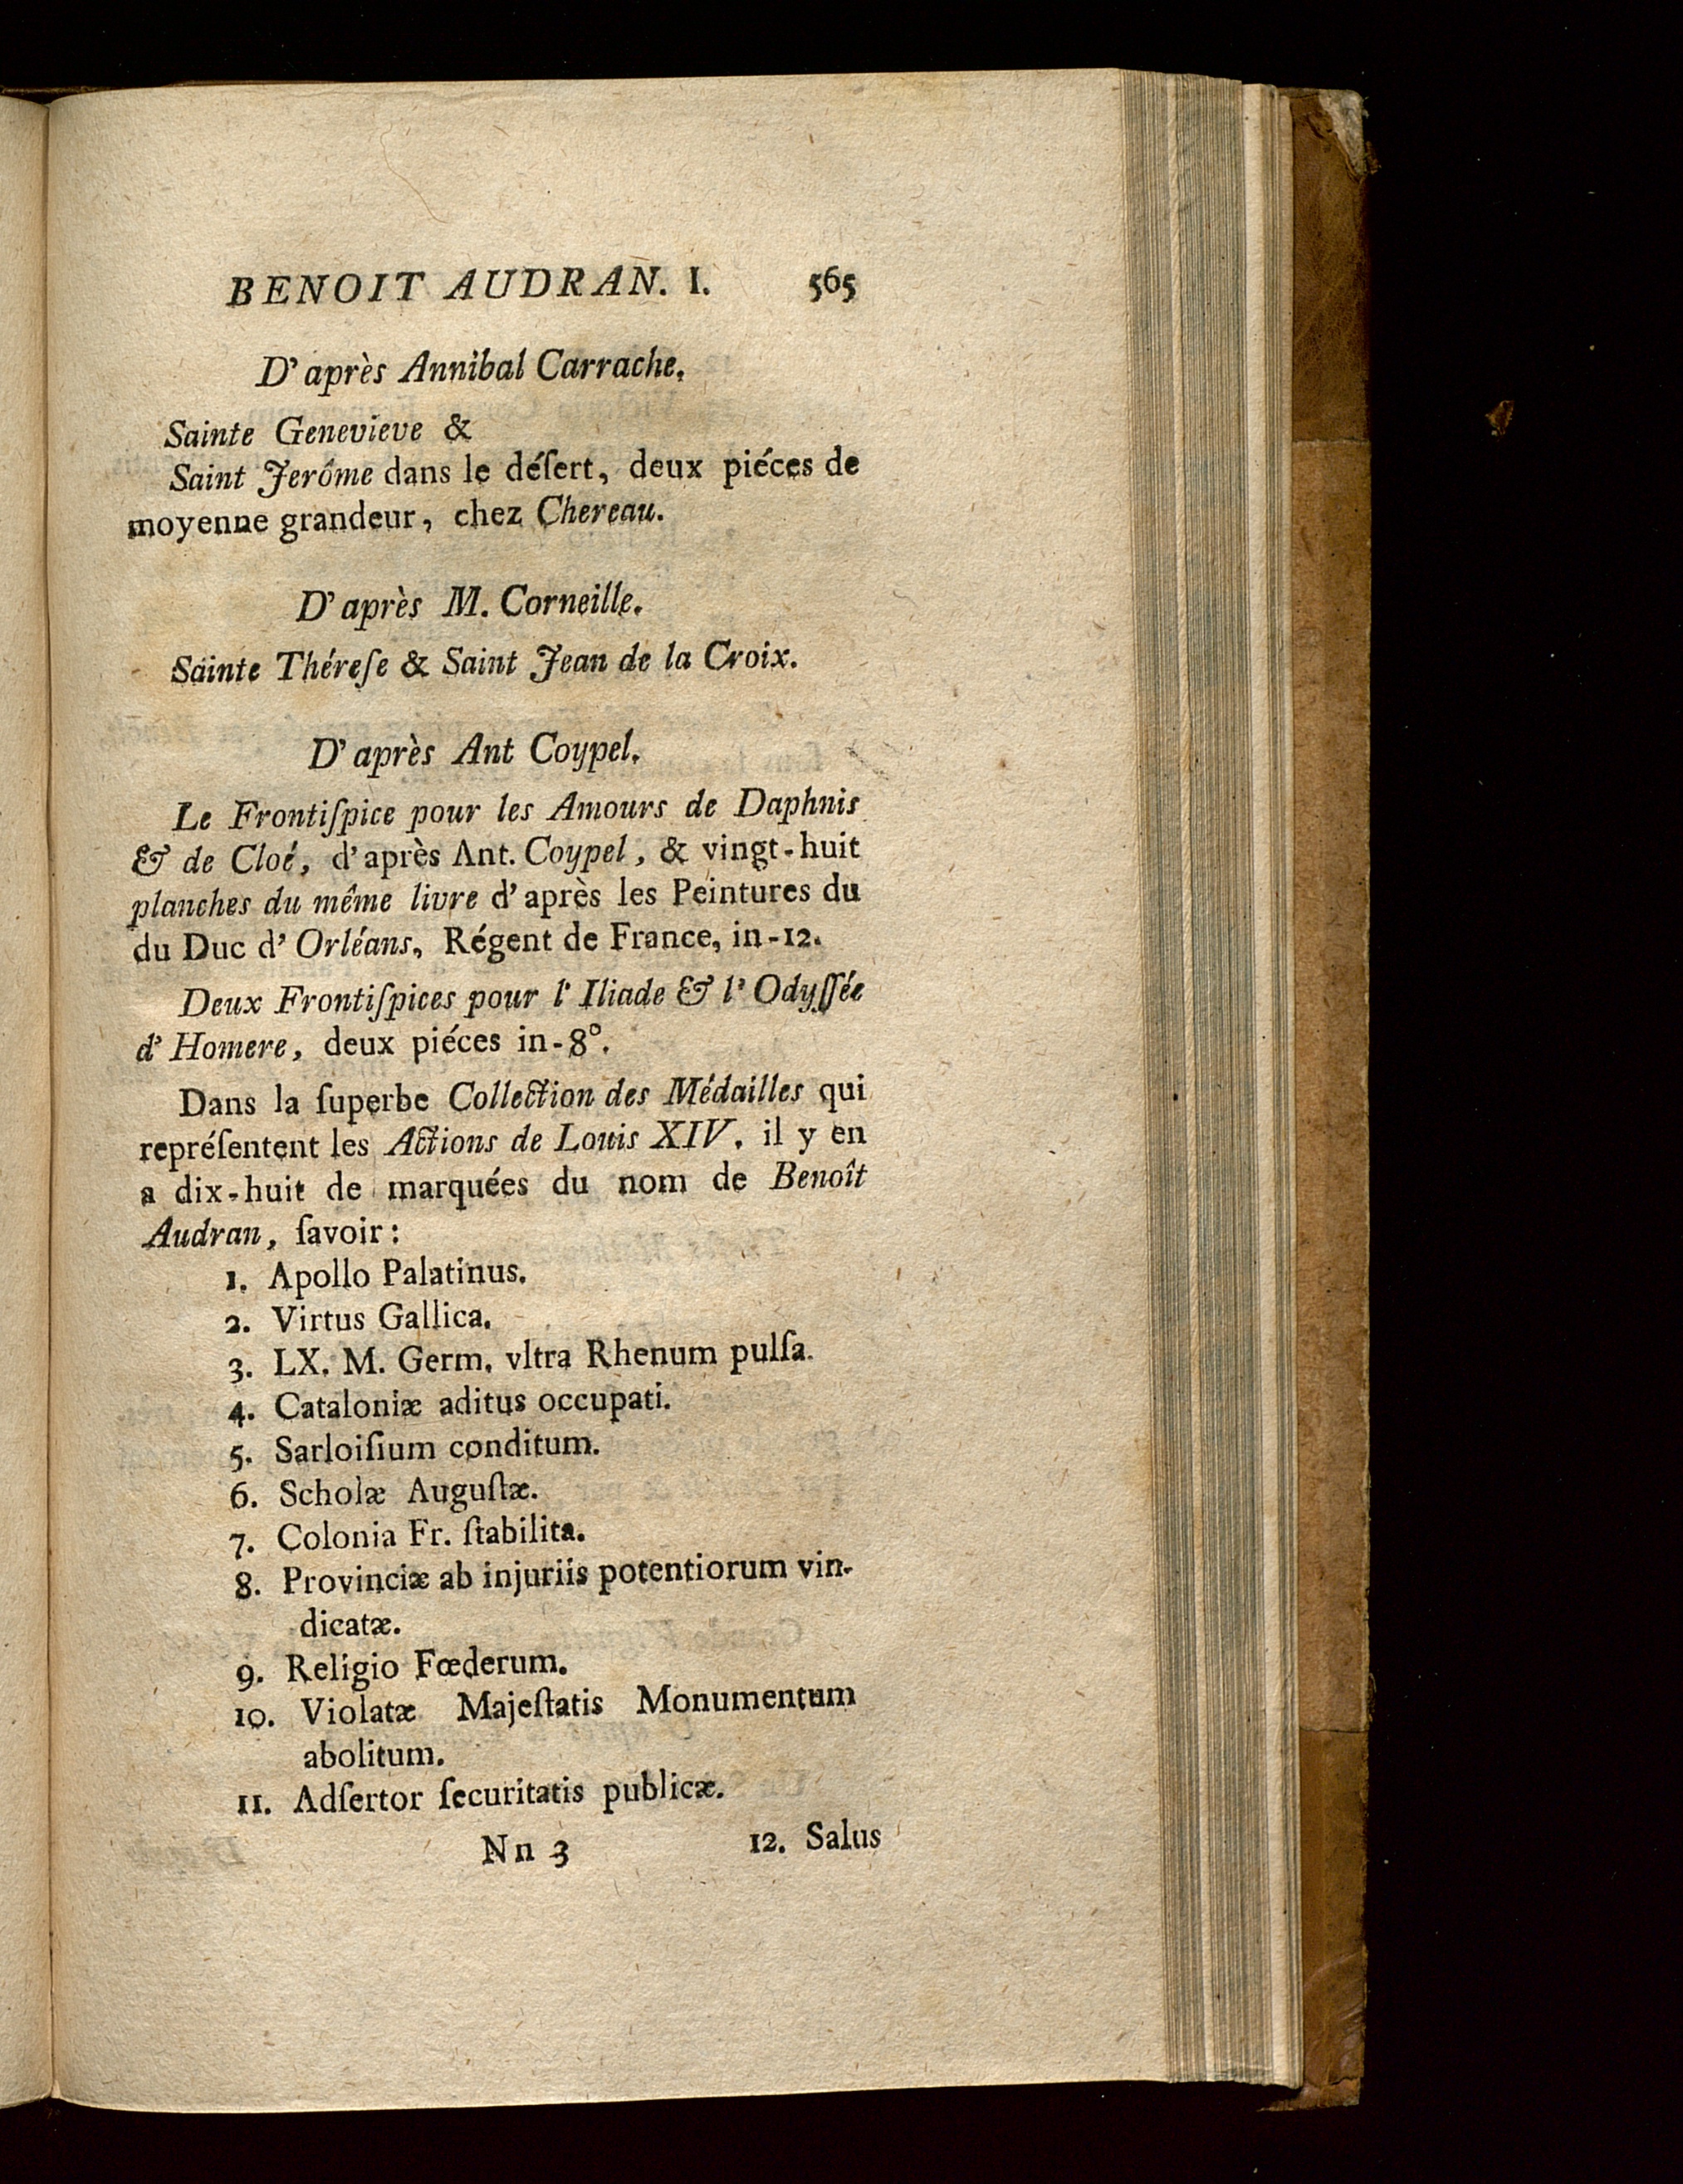 BENOIT AUDRAN. I. 565
D'après Annibal Carrache.
Sainte Genevieve &
Saint Jerôme dans le déſert, deux piéces de
moyenne grandeur, chez Chereau.
D'après M. Corneille.
Sainte Théreſe & Saint Jean de la Croix.
D'après Ant Coypel.
Le Frontiſpice pour les Amours de Daphnis
& de Cloé, d'après Ant. Coypel, & vingt-huit
planches du même livre d'après les Peintures du
du Duc d'Orléans, Régent de France, in-12.
Deux Frontiſpices pour l'Iliade & l'Odyſſée
d'Homere, deux piéces in-8°.
Dans la ſuperbe Collection des Médailles qui
repréſentent les Actions de Louis XIV. il y en
a dix-huit de marquées du nom de Benoît
Audran, ſavoir:
1. Apollo Palatinus.
2. Virtus Gallica.
3. LX. M. Germ. vltra Rhenum pulſa.
4. Cataloniæ aditus occupati.
5. Sarloiſium conditum.
6. Scholæ Auguſtæ.
7. Colonia Fr. ſtabilita.
8. Provinciæ ab injuriis potentiorum vin-
dicatæ.
9. Religio Fœderum.
10. Violatæ Majeſtatis Monumentum
abolitum.
11. Adſertor ſecuritatis publicæ.
Nn 3 12. Salus